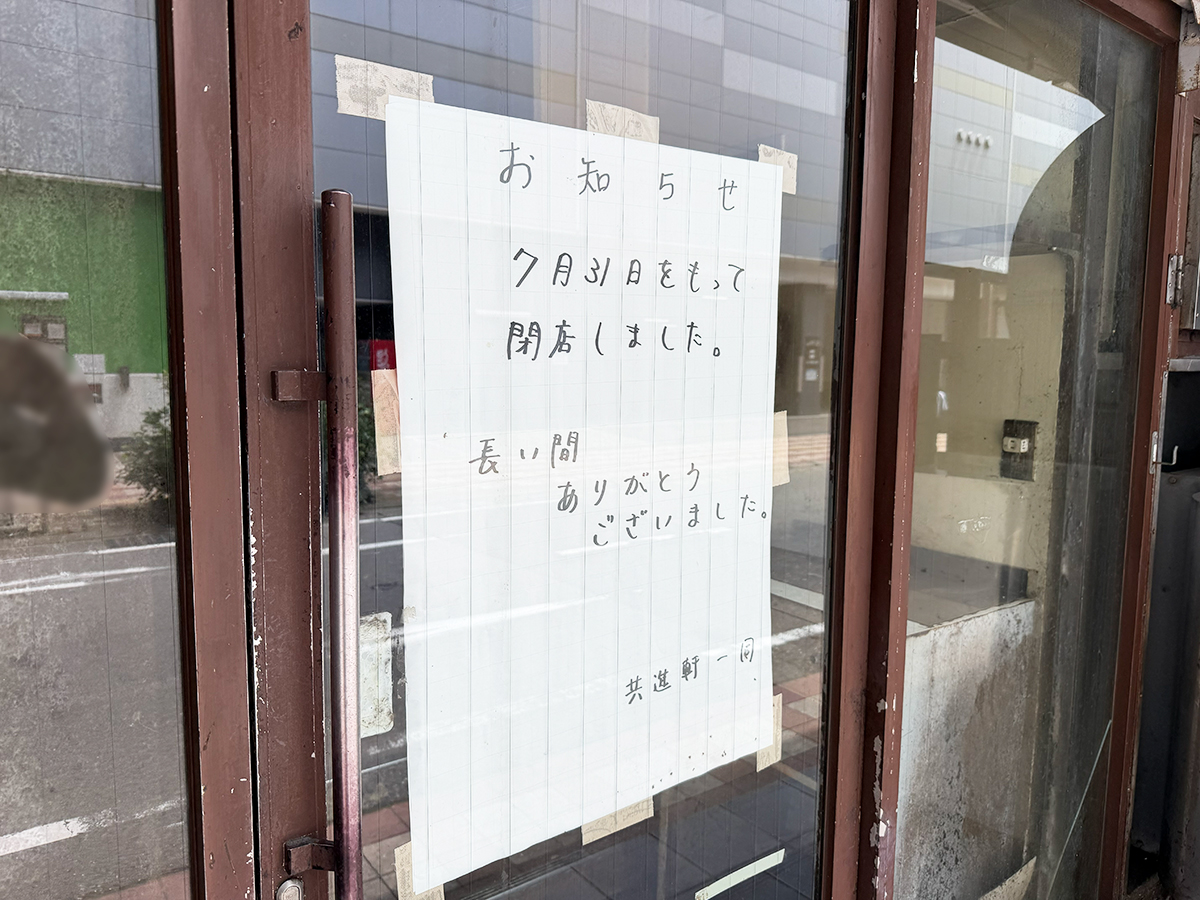 お知らせ
7月31日をもって
閉店しました。
長い間
ありがとう
ございました。
共進軒一同